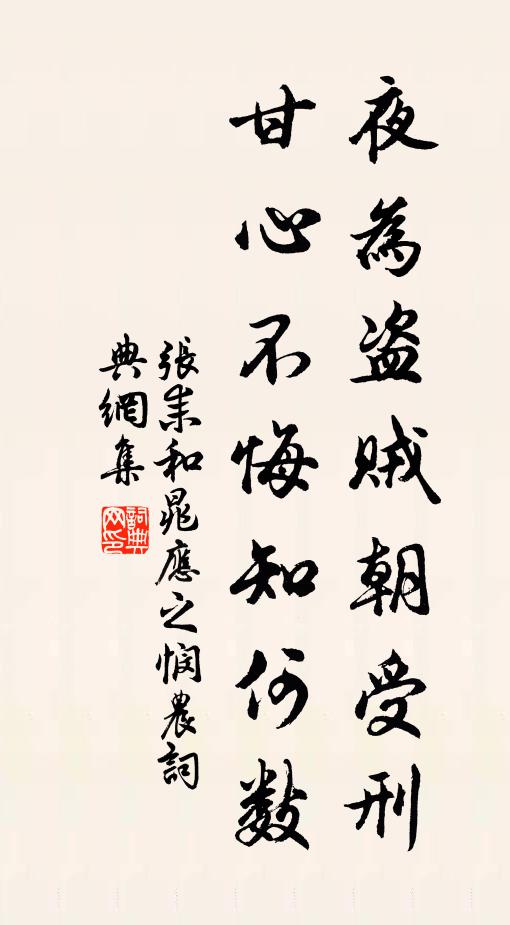 夜為盜賊朝受刑
甘心不悔知何數
張耒和晁應之憫農詞
典網集
詞典網印